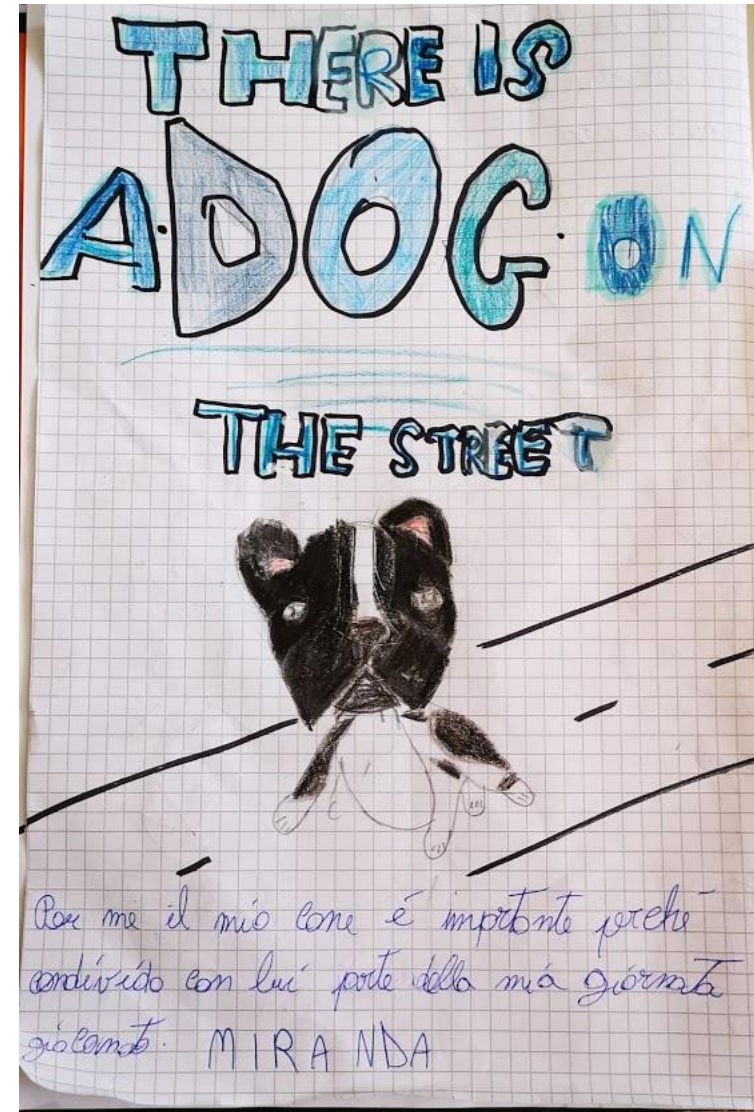 THERE IS
A.DOG.ON
THE STREET
Per me il mio cane é imprtante perché
condivido con lui parte della mia giornata
giocando. MIRANDA